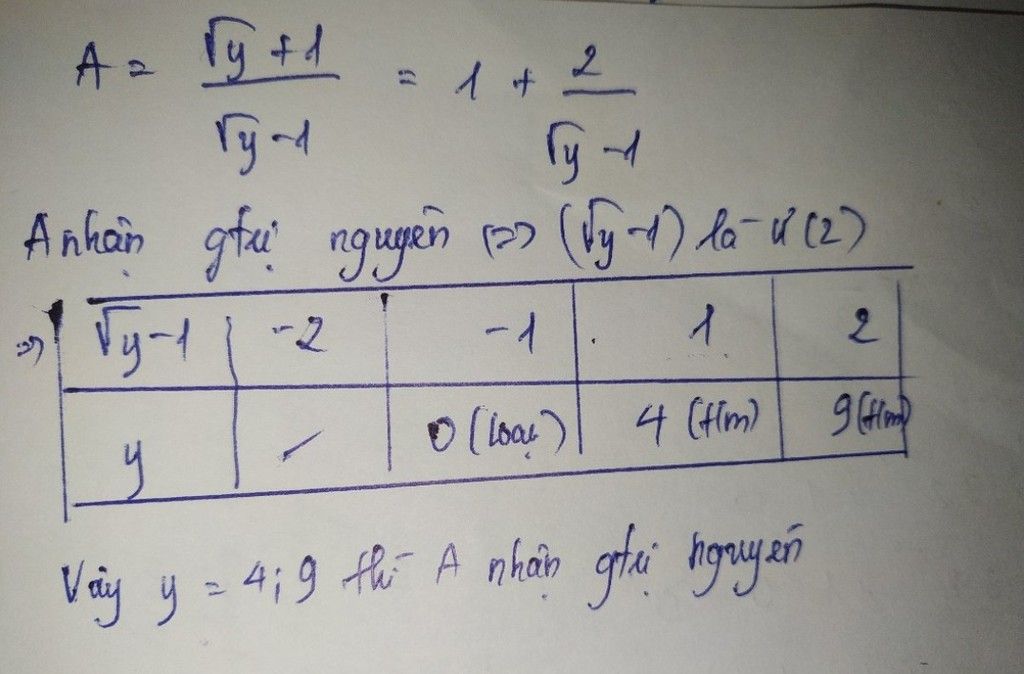 A = √y + 1 / √y - 1 = 1 + 2 / √y - 1
A nhận gtrị nguyên <=> (√y - 1) là Ư(2)
=> √y - 1 | -2 | -1 | 1 | 2
y | / | 0 (loại) | 4 (t/m) | 9 (t/m)
Vậy y = 4; 9 thì A nhận gtrị nguyên